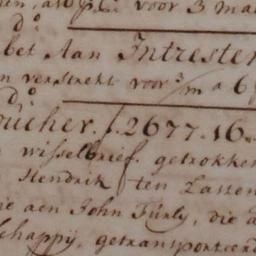 voor 3 ma
d°
bet Aan Intresten
n verstrekt voor 3/m a 6
d°
ƒ. 2677.16
wisselbrief getrokken
Hendrik ten Lassen
ie aen John Furly, die a
chappij, getransporteerd